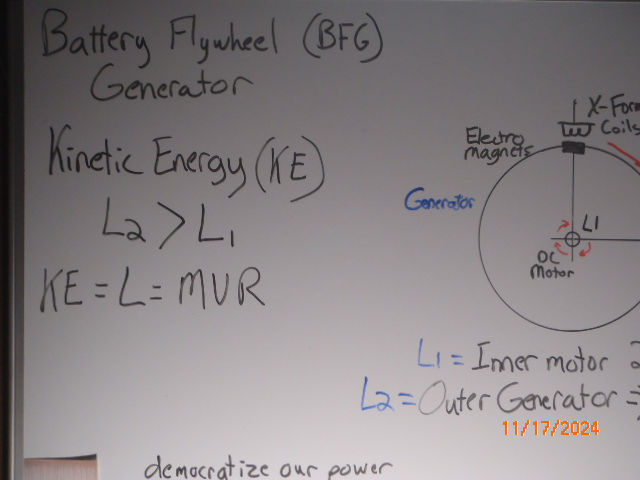 Battery Flywheel (BFG)
Generator
Kinetic Energy (KE)
L2 > L1
KE = L = MVR
X-Form
Coils
Electro
magnets
Generator
L1
DC
Motor
L1 = Inner motor
L2 = Outer Generator =
11/17/2024
democratize our power